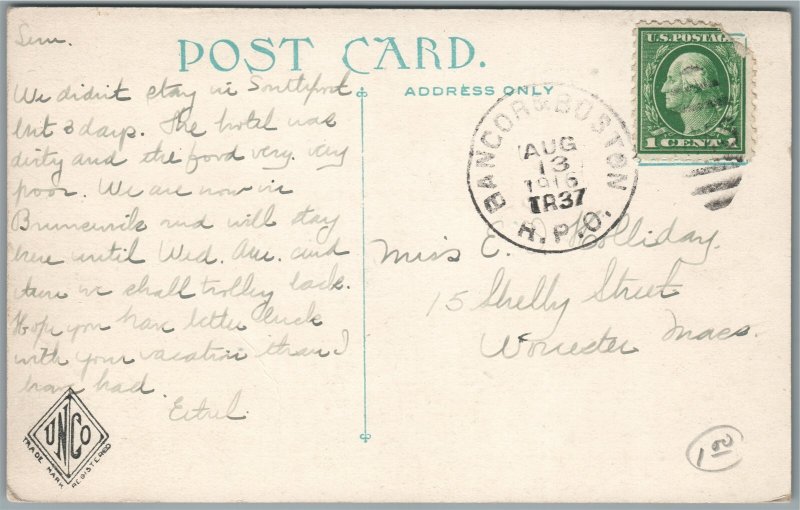 POST CARD.
ADDRESS ONLY
Sun.
We didn't stay in Southport
but 3 days. The hotel was
dirty and the food very, very
poor. We are now in
Brunswick and will stay
here until Wed. Am. and
then we shall trolley back.
Hope you have better luck
with your vacation than I
have had.
Ethel.
UNCO
TRADE MARK REGISTERED
U.S. POSTAGE
1 CENT 1
BANGOR & BOSTON
AUG
13
1916
TR37
R.P.O.
Miss E. Holliday.
15 Shelly Street
Worcester Mass.
1 00